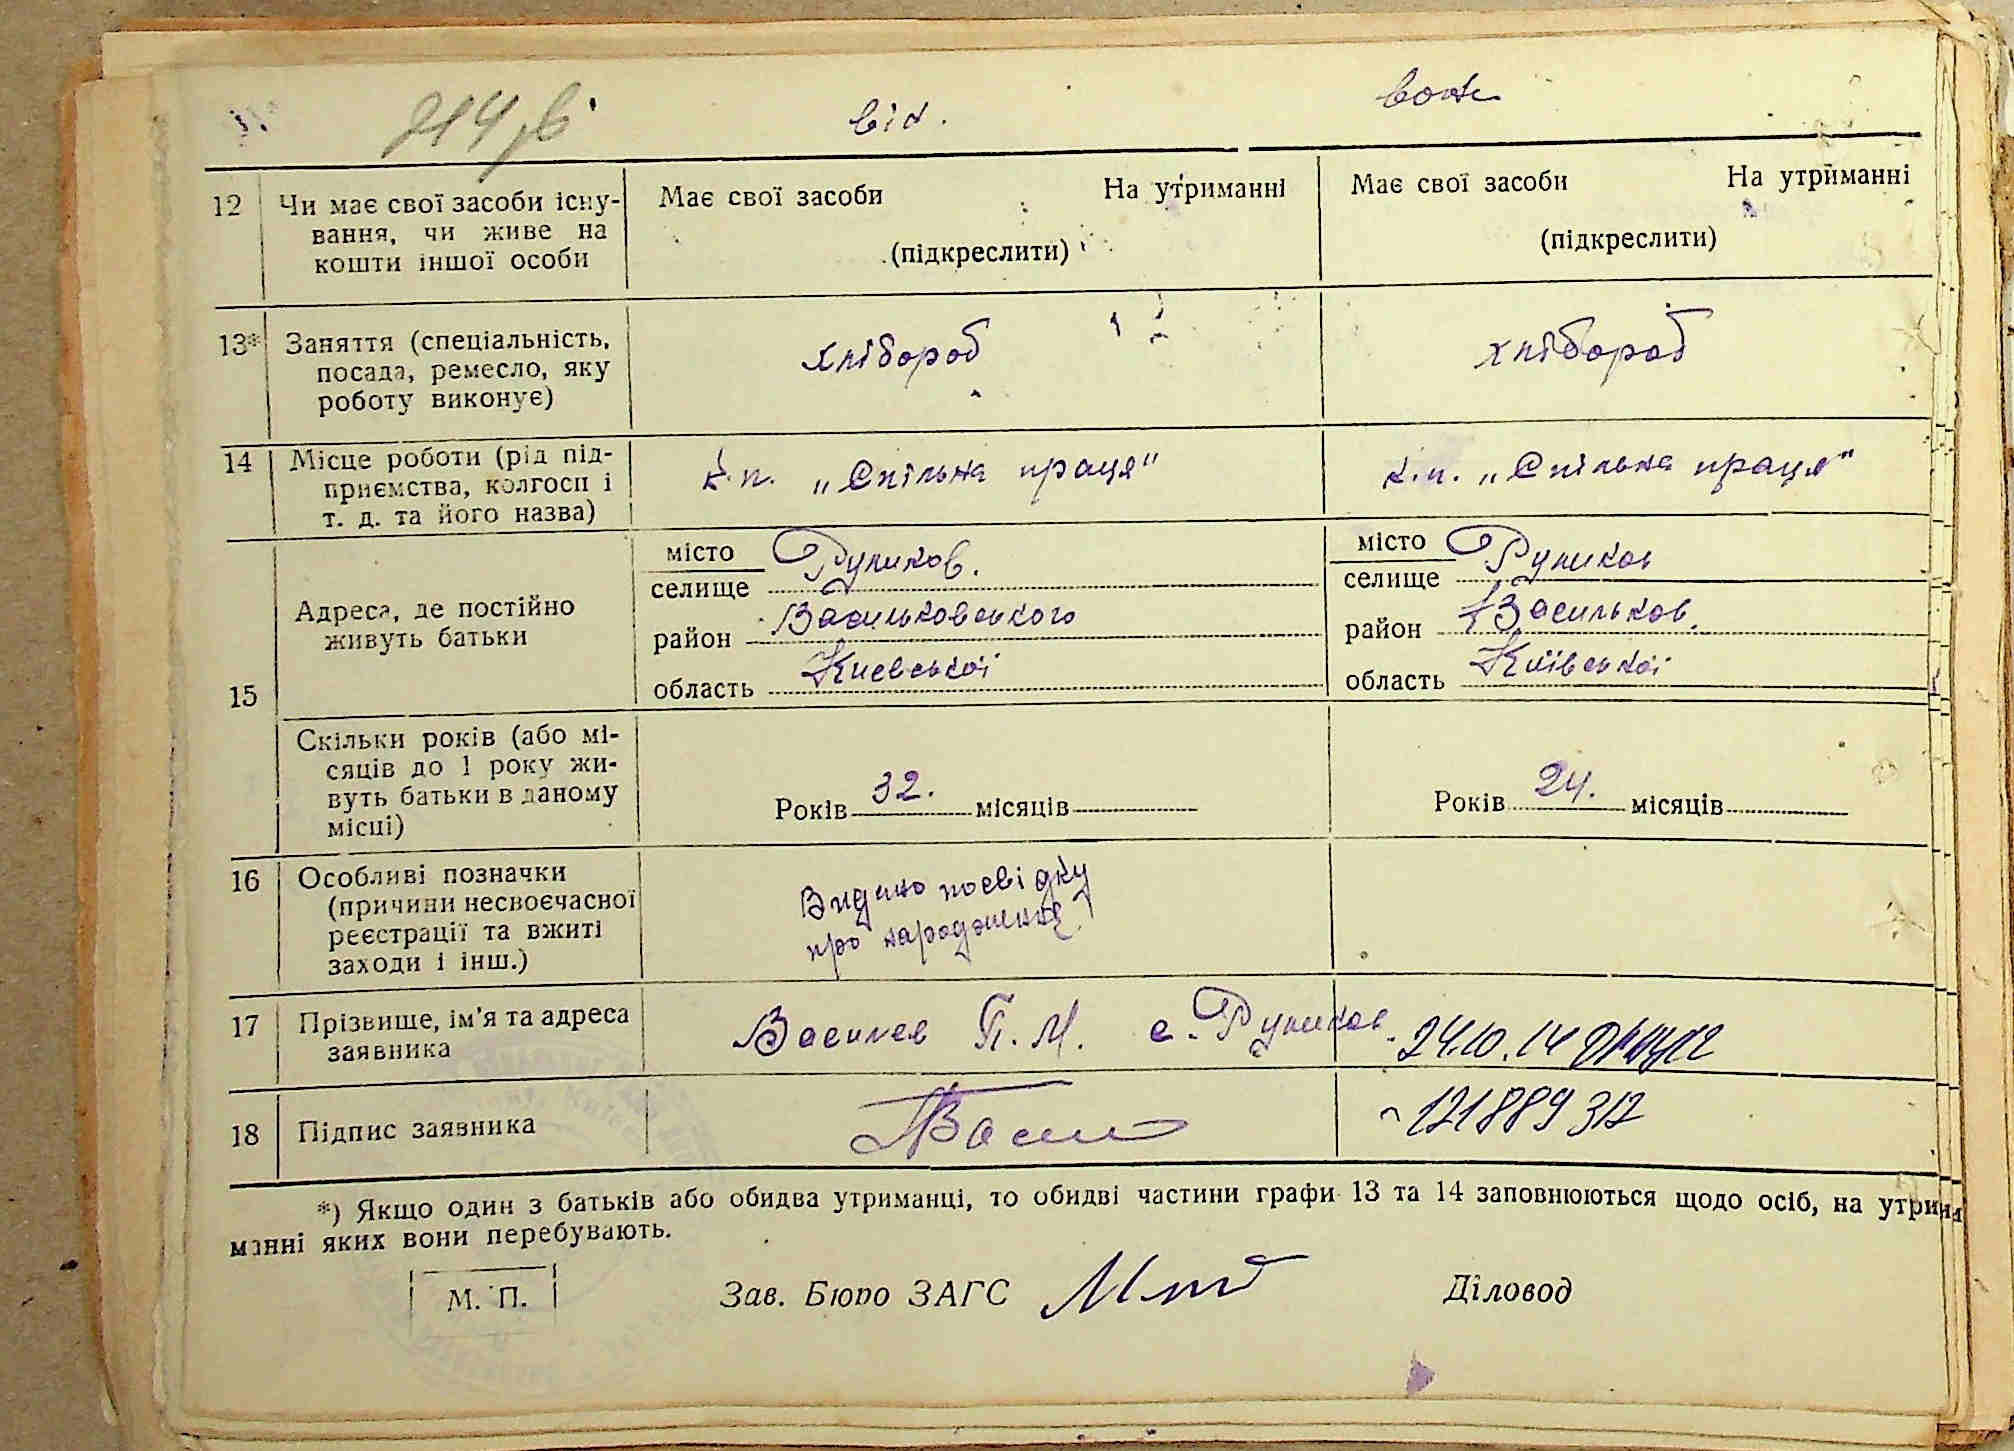 214 зв
він.
вона
12 Чи має свої засоби існу- Має свої засоби На утриманні Має свої засоби На утриманні
вання, чи живе на
кошти іншої особи (підкреслити) (підкреслити)
13* Заняття (спеціальність,
посада, ремесло, яку хлібороб хлібороб
роботу виконує)
14 Місце роботи (рід під-
приємства, колгосп і к.п. „Спільна праця" к.п. „Спільна праця"
т. д. та його назва)
15 Адреса, де постійно
живуть батьки
місто
селище Руликов.
район Васильковського
область Киевської
місто
селище Руликов
район Васильков.
область Київської
Скільки років (або мі-
сяців до 1 року жи-
вуть батьки в даному
місці)
Років 32. місяців
Років 24. місяців
16 Особливі позначки
(причини несвоєчасної
реєстрації та вжиті
заходи і інш.)
Видано посвідку
про народження
17 Прізвище, ім'я та адреса
заявника
Василев П. М. с. Руликов.
24.10.14
18 Підпис заявника
121889312
*) Якщо один з батьків або обидва утриманці, то обидві частини графи 13 та 14 заповнюються щодо осіб, на утри
манні яких вони перебувають.
М. П. Зав. Бюро ЗАГС Діловод